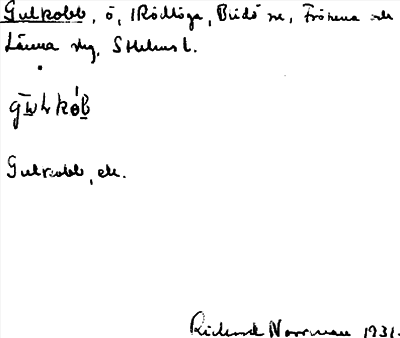 Gulkobb, ö, i Rödlöga, Blidö sn, Frötuna och
Länna skg, Sthlms l.
Gulkobb, ek.
Richard Norrman 1931.